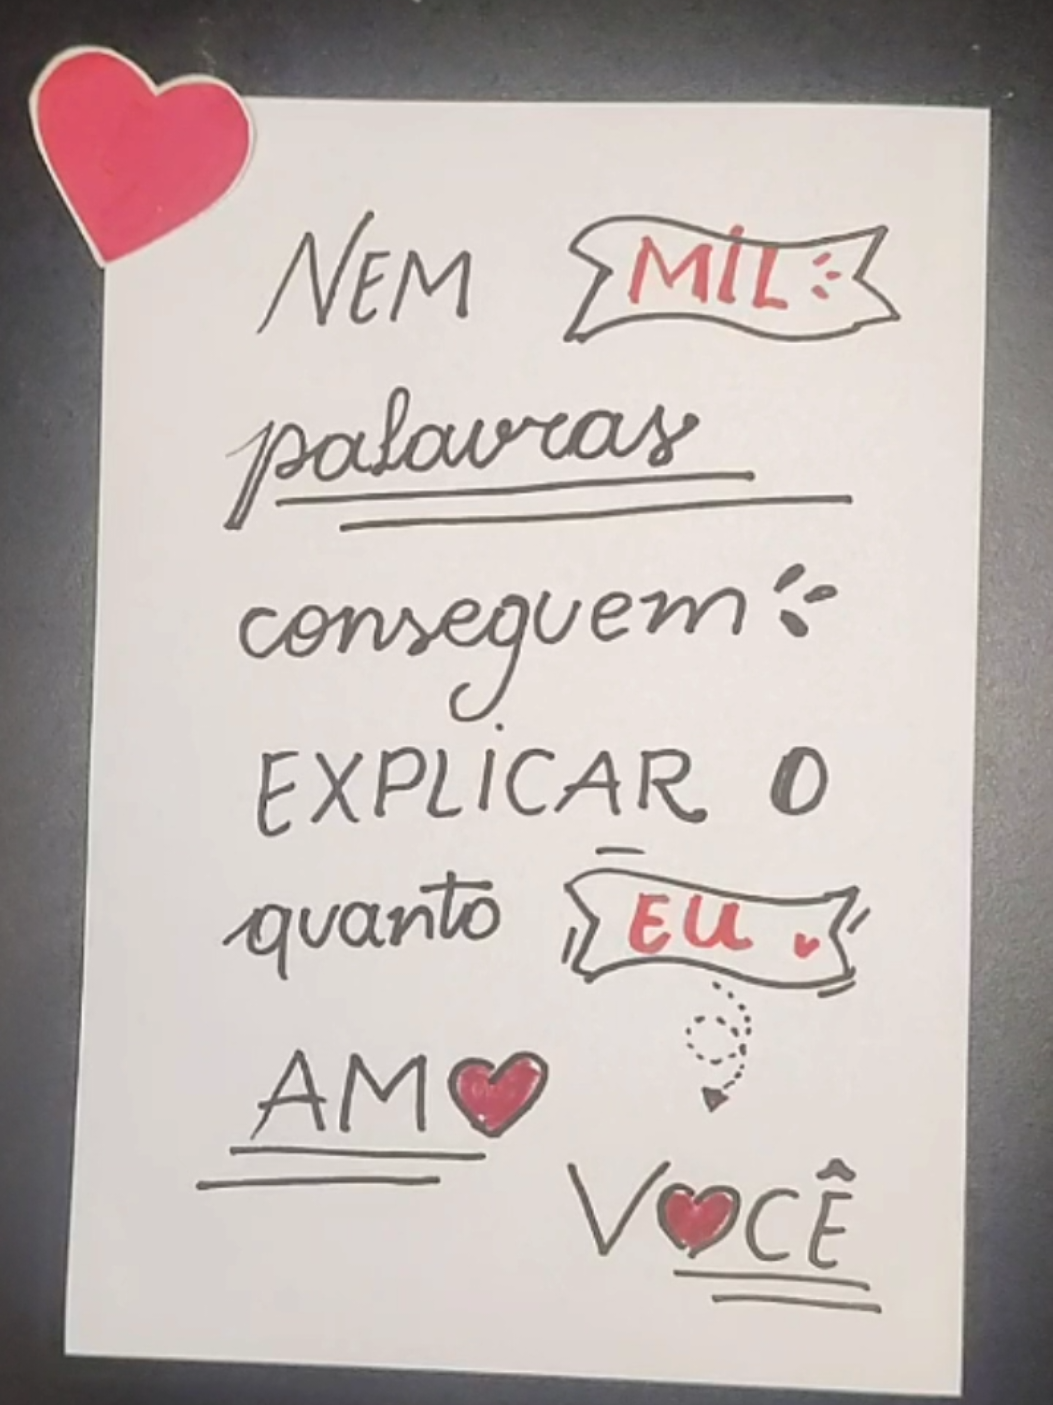 NEM MIL
palavras
conseguem
EXPLICAR O
quanto EU
AMO
VOCÊ